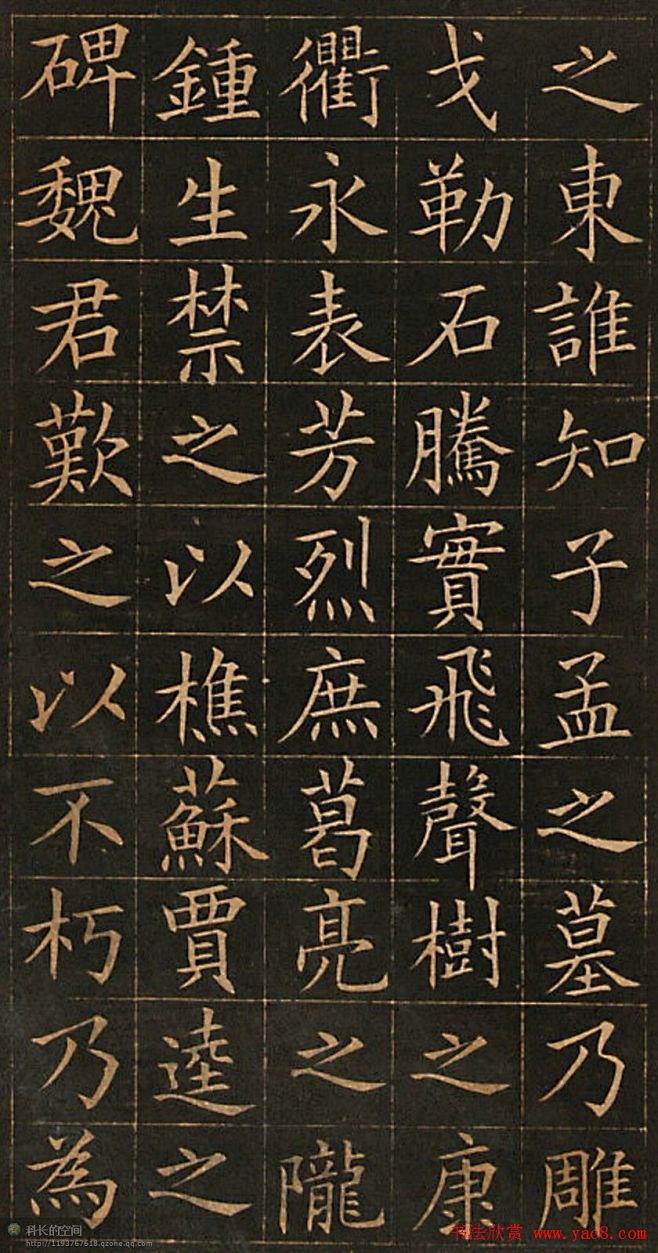 之東誰知子孟之墓乃雕
戈勒石騰實飛聲樹之康
衢永表芳烈庶葛亮之隴
鍾生禁之以樵蘇賈逵之
碑魏君歎之以不朽乃為
科长的空间
http://1193767618.qzone.qq.com
书法欣赏 www.yac8.com